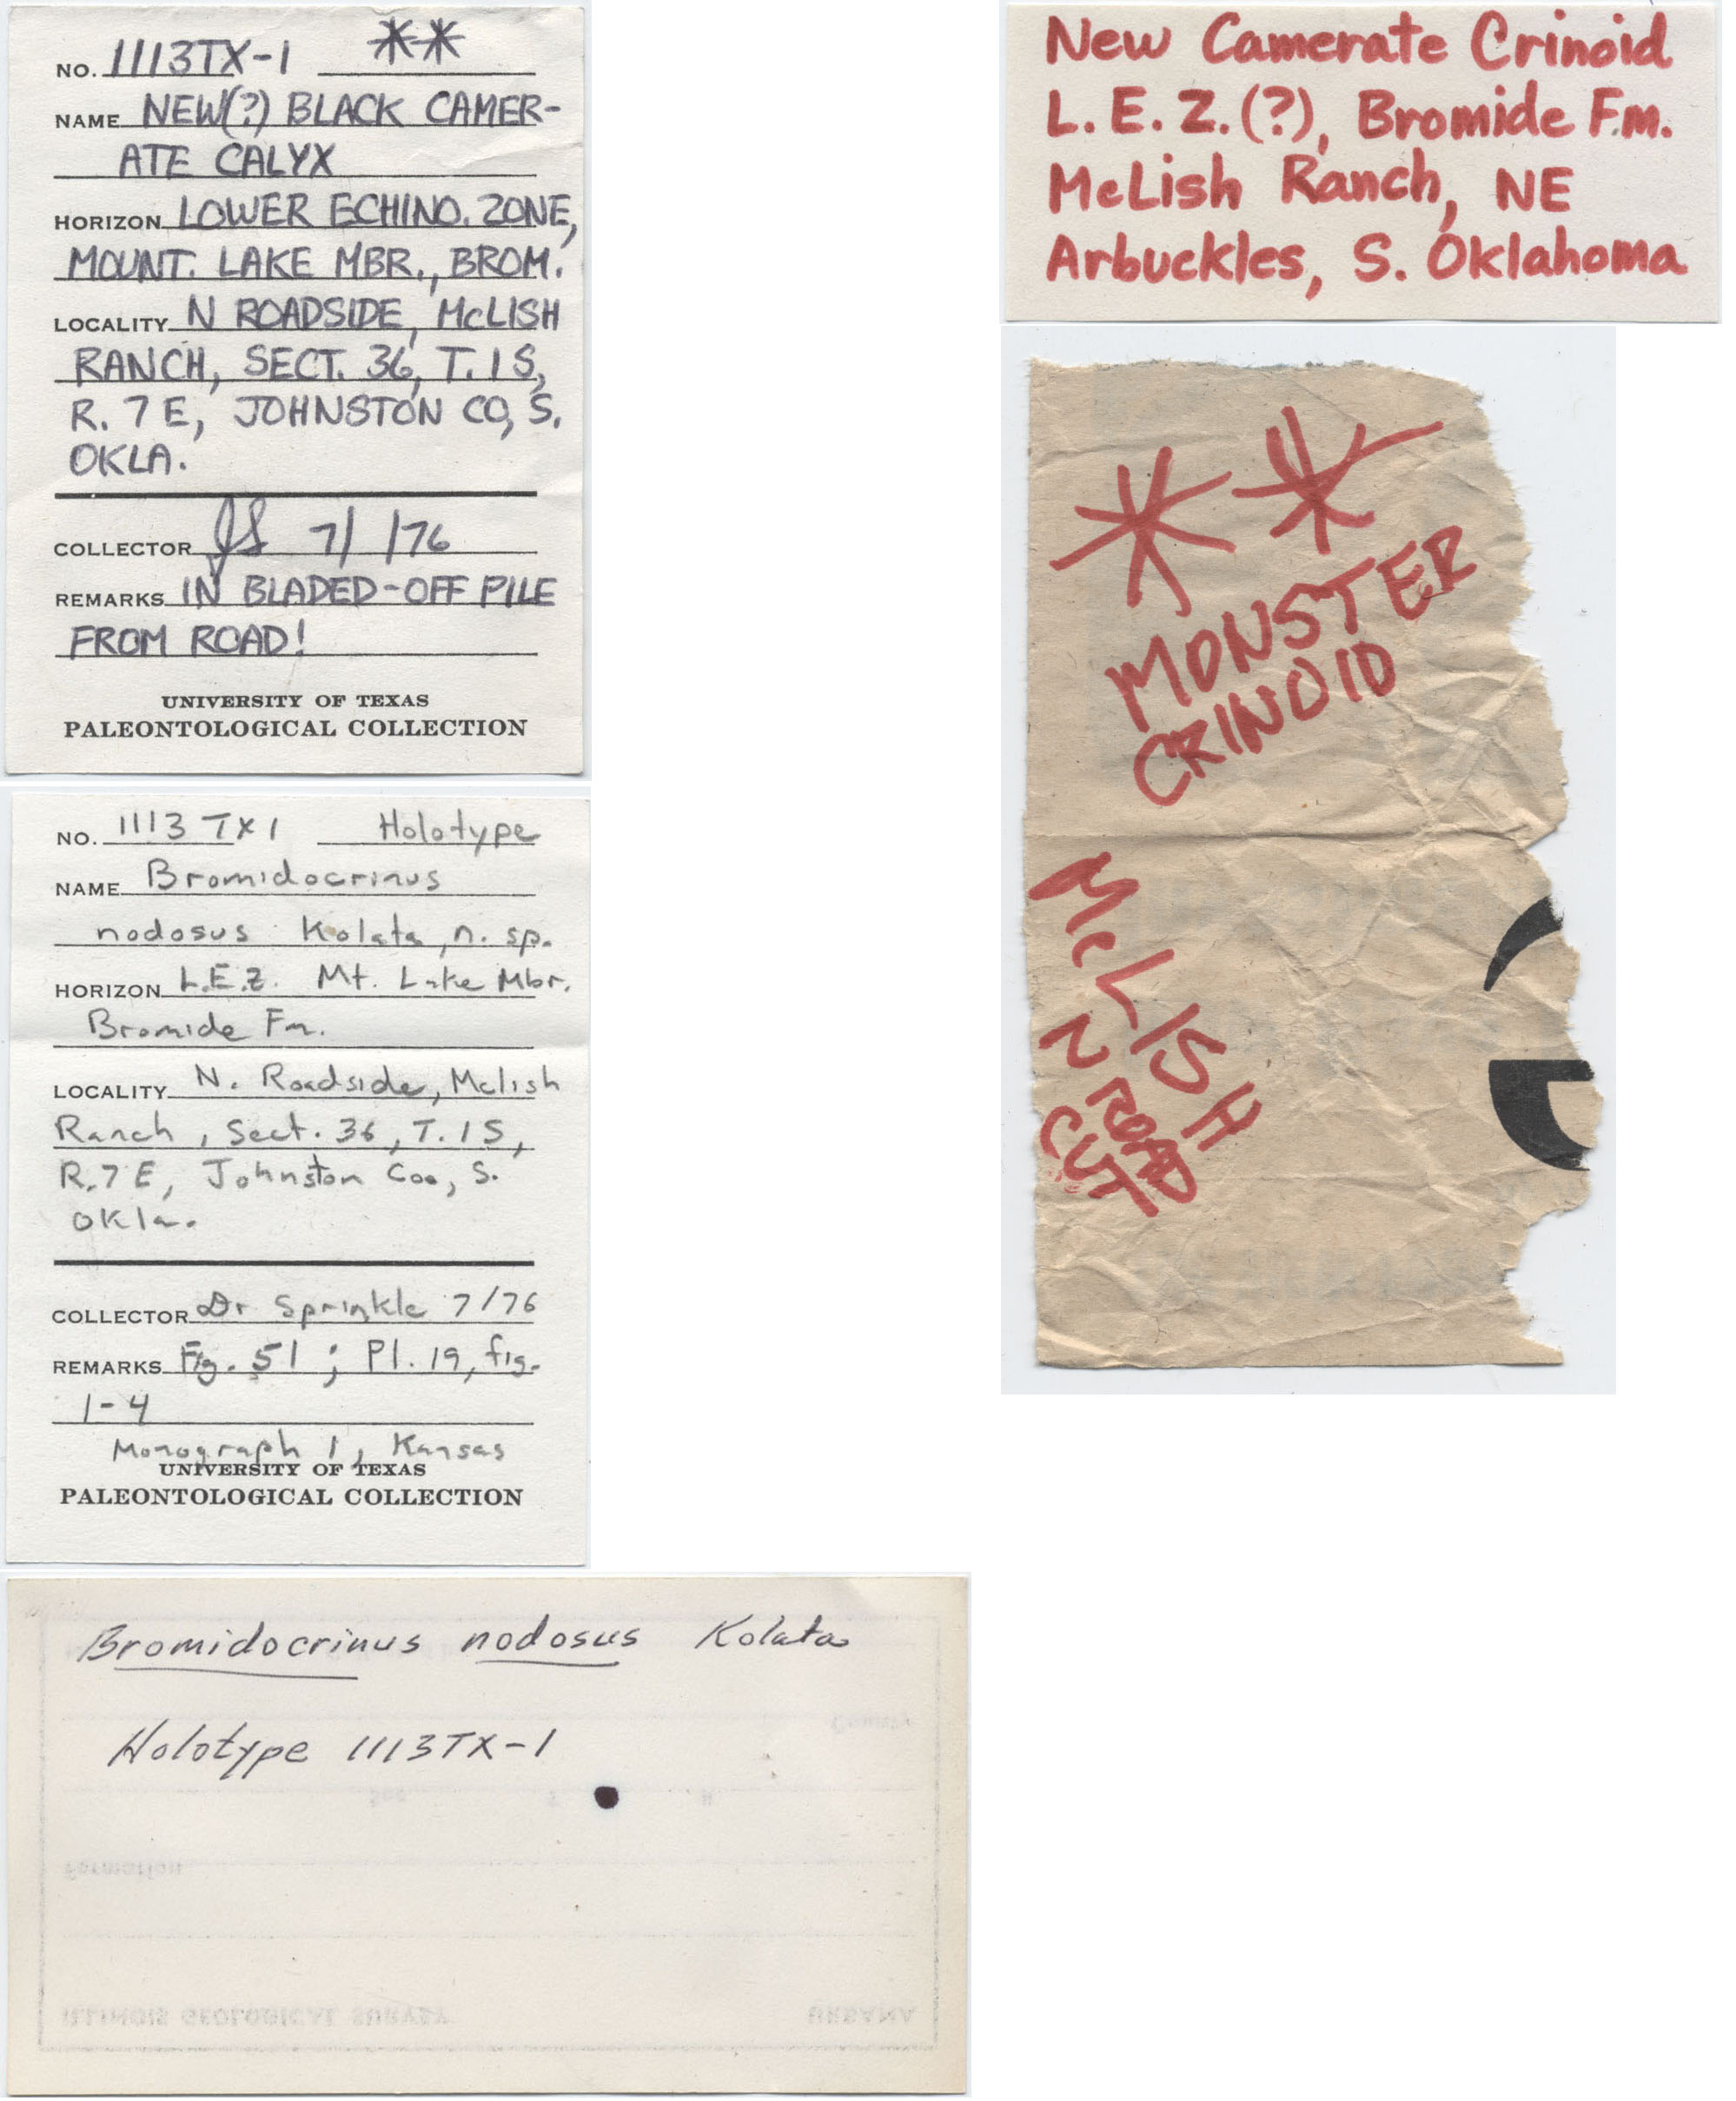 NO. 1113TX-1 **
NAME NEW(?) BLACK CAMER-
ATE CALYX
HORIZON LOWER ECHINO. ZONE,
MOUNT. LAKE MBR., BROM.
LOCALITY N ROADSIDE, McLISH
RANCH, SECT. 36, T. 1 S,
R. 7 E, JOHNSTON CO, S.
OKLA.
COLLECTOR JS 7/ /76
REMARKS IN BLADED-OFF PILE
FROM ROAD!
UNIVERSITY OF TEXAS
PALEONTOLOGICAL COLLECTION
NO. 1113 TX1 Holotype
NAME Bromidocrinus
nodosus Kolata, n. sp.
HORIZON L.E.Z. Mt. Lake Mbr.
Bromide Fm.
LOCALITY N. Roadside, Mclish
Ranch, Sect. 36, T. 1 S,
R. 7 E, Johnston Co., S.
Okla.
COLLECTOR Dr Sprinkle 7/76
REMARKS Fig. 51; Pl. 19, fig.
1-4
Monograph 1, Kansas
UNIVERSITY OF TEXAS
PALEONTOLOGICAL COLLECTION
Bromidocrinus nodosus Kolata
Holotype 1113TX-1
County
Sec. T. R.
Formation
ILLINOIS GEOLOGICAL SURVEY URBANA
New Camerate Crinoid
L. E. Z. (?), Bromide Fm.
McLish Ranch, NE
Arbuckles, S. Oklahoma
**
MONSTER
CRINOID
McLISH
N ROAD
CUT